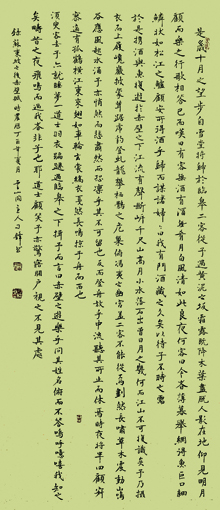 是歲十月之望步自雪堂將歸於臨皋二客從予過黃泥之坂霜露既降木葉盡脫人影在地仰見明月
顧而樂之行歌相答已而嘆曰有客無酒有酒無肴月白風清如此良夜何客曰今者薄暮舉網得魚巨口細
鱗狀如松江之鱸顧安所得酒乎歸而謀諸婦婦曰我有斗酒藏之久矣以待子不時之需
於是攜酒與魚復遊於赤壁之下江流有聲斷岸千尺山高月小水落石出曾日月之幾何而江山不可復識矣予乃攝
衣而上履巉巖披蒙茸踞虎豹登虬龍攀棲鶻之危巢俯馮夷之幽宮蓋二客不能從焉劃然長嘯草木震動山鳴
谷應風起水涌予亦悄然而悲肅然而恐凜乎其不可留也反而登舟放乎中流聽其所止而休焉時夜將半四顧寂
寥適有孤鶴橫江東來翅如車輪玄裳縞衣戛然長鳴掠予舟而西也
須臾客去予亦就睡夢一道士羽衣蹁躚過臨皋之下揖予而言曰赤壁之遊樂乎問其姓名俯而不答嗚呼噫嘻我知之
矣疇昔之夜飛鳴而過我者非子也耶道士顧笑予亦驚寤開戶視之不見其處
錄蘇東坡後赤壁賦丁酉年夏月